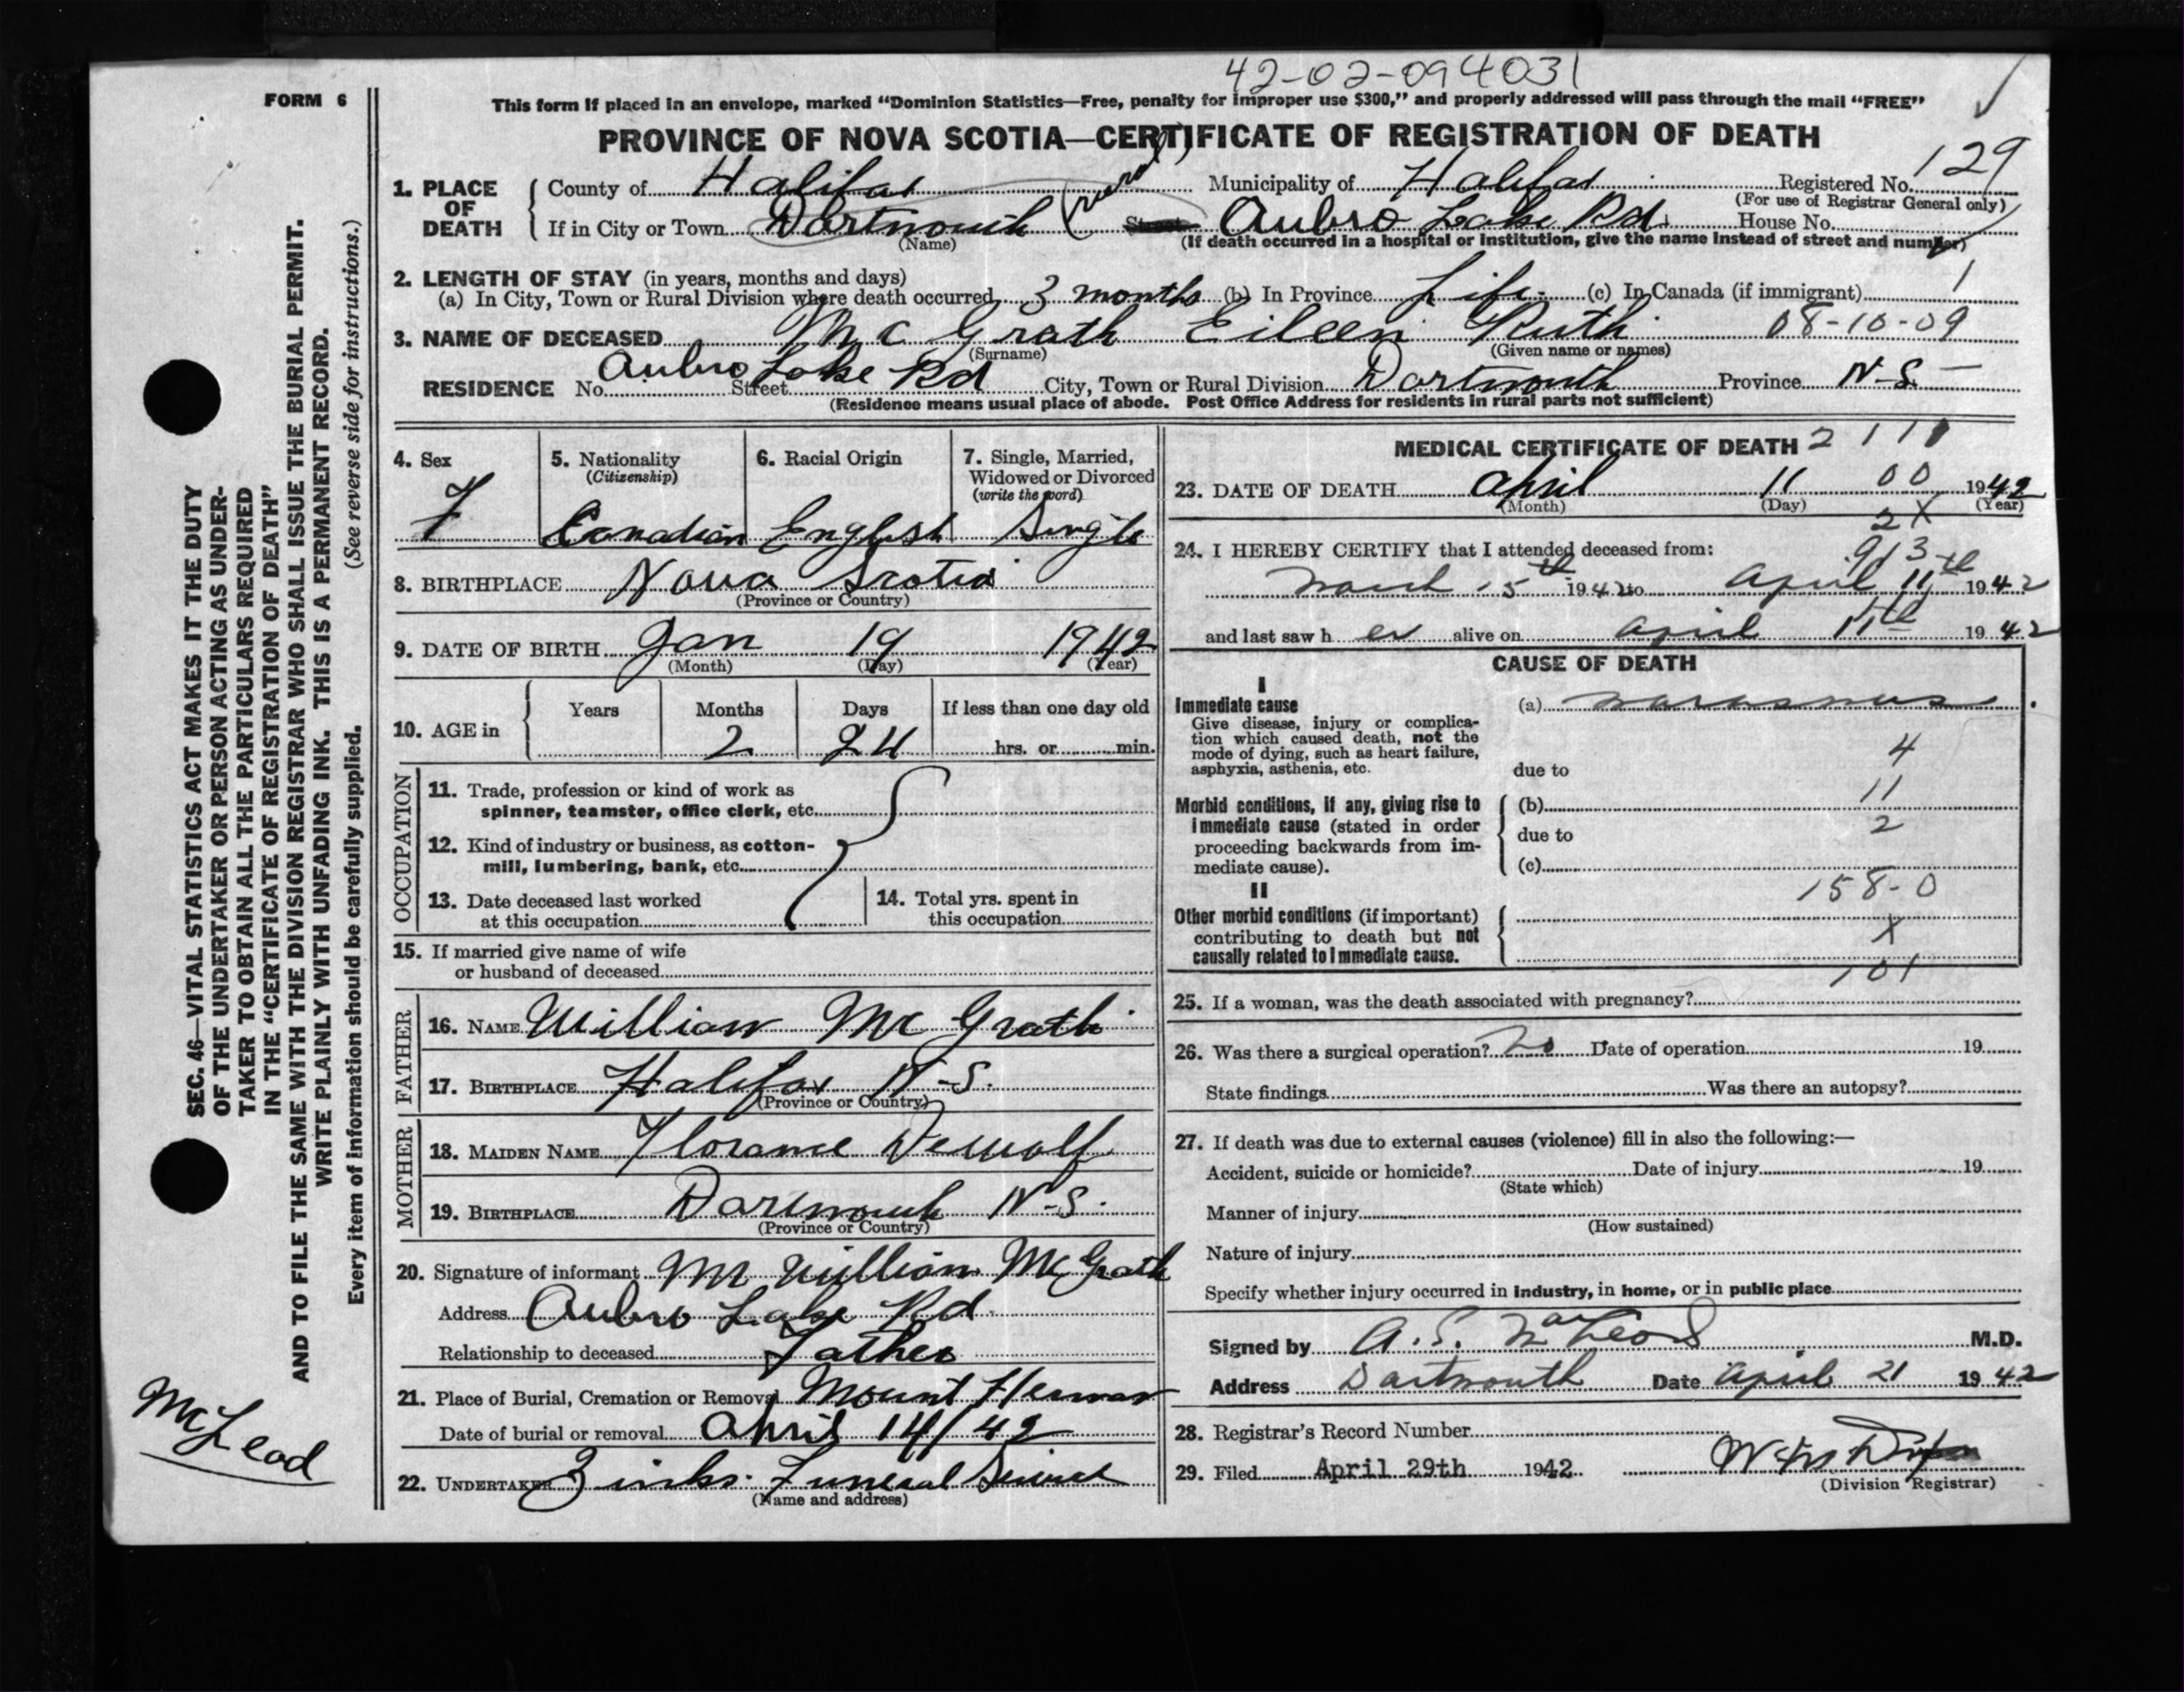 42-02-094031
FORM 6
This form if placed in an envelope, marked “Dominion Statistics—Free, penalty for improper use $300,” and properly addressed will pass through the mail “FREE”
PROVINCE OF NOVA SCOTIA—CERTIFICATE OF REGISTRATION OF DEATH
1. PLACE OF DEATH
County of Halifax (rural) Municipality of Halifax Registered No. 129
(For use of Registrar General only)
If in City or Town Dartmouth Street Aubro Lake Rd. House No.
(Name)
(If death occurred in a hospital or institution, give the name instead of street and number)
2. LENGTH OF STAY (in years, months and days)
(a) In City, Town or Rural Division where death occurred 3 months (b) In Province Life (c) In Canada (if immigrant) 1
3. NAME OF DECEASED McGrath Eileen Ruth 08-10-09
(Surname) (Given name or names)
RESIDENCE No. Street Aubro Lake Rd City, Town or Rural Division Dartmouth Province N-S. —
(Residence means usual place of abode. Post Office Address for residents in rural parts not sufficient)
4. Sex F
5. Nationality (Citizenship) Canadian
6. Racial Origin English
7. Single, Married, Widowed or Divorced (write the word) Single
8. BIRTHPLACE Nova Scotia
(Province or Country)
9. DATE OF BIRTH Jan 19 1942
(Month) (Day) (Year)
10. AGE in Years Months Days If less than one day old
2 24 hrs. or min.
OCCUPATION
11. Trade, profession or kind of work as spinner, teamster, office clerk, etc.
12. Kind of industry or business, as cotton-mill, lumbering, bank, etc.
13. Date deceased last worked at this occupation
14. Total yrs. spent in this occupation
15. If married give name of wife or husband of deceased
FATHER
16. NAME William McGrath
17. BIRTHPLACE Halifax N-S.
(Province or Country)
MOTHER
18. MAIDEN NAME Florance Dewolf
19. BIRTHPLACE Dartmouth N-S.
(Province or Country)
20. Signature of informant Mr William McGrath
Address Aubro Lake Rd.
Relationship to deceased Father
21. Place of Burial, Cremation or Removal Mount Herman
Date of burial or removal April 14/42
22. UNDERTAKER Zinks Funeral Service
(Name and address)
MEDICAL CERTIFICATE OF DEATH 2 1 1 1
23. DATE OF DEATH April 11 00 1942
(Month) (Day) (Year)
2X
24. I HEREBY CERTIFY that I attended deceased from:
913
March 15th 1942 to April 11th 1942
and last saw her alive on April 11th 1942
CAUSE OF DEATH
I
Immediate cause
Give disease, injury or complication which caused death, not the mode of dying, such as heart failure, asphyxia, asthenia, etc.
(a) marasmus.
4
due to
Morbid conditions, if any, giving rise to immediate cause (stated in order proceeding backwards from immediate cause).
(b) 11
due to 2
(c)
158-0
II
Other morbid conditions (if important) contributing to death but not causally related to immediate cause.
X
101
25. If a woman, was the death associated with pregnancy?
26. Was there a surgical operation? No Date of operation 19
State findings Was there an autopsy?
27. If death was due to external causes (violence) fill in also the following:—
Accident, suicide or homicide? Date of injury 19
(State which)
Manner of injury
(How sustained)
Nature of injury
Specify whether injury occurred in industry, in home, or in public place
Signed by A. S. MacLeod M.D.
Address Dartmouth Date April 21 1942
28. Registrar's Record Number
29. Filed April 29th 1942.
(Division Registrar)
SEC. 46—VITAL STATISTICS ACT MAKES IT THE DUTY
OF THE UNDERTAKER OR PERSON ACTING AS UNDER-
TAKER TO OBTAIN ALL THE PARTICULARS REQUIRED
IN THE “CERTIFICATE OF REGISTRATION OF DEATH”
AND TO FILE THE SAME WITH THE DIVISION REGISTRAR WHO SHALL ISSUE THE BURIAL PERMIT.
WRITE PLAINLY WITH UNFADING INK. THIS IS A PERMANENT RECORD.
Every item of information should be carefully supplied. (See reverse side for instructions.)
McLead